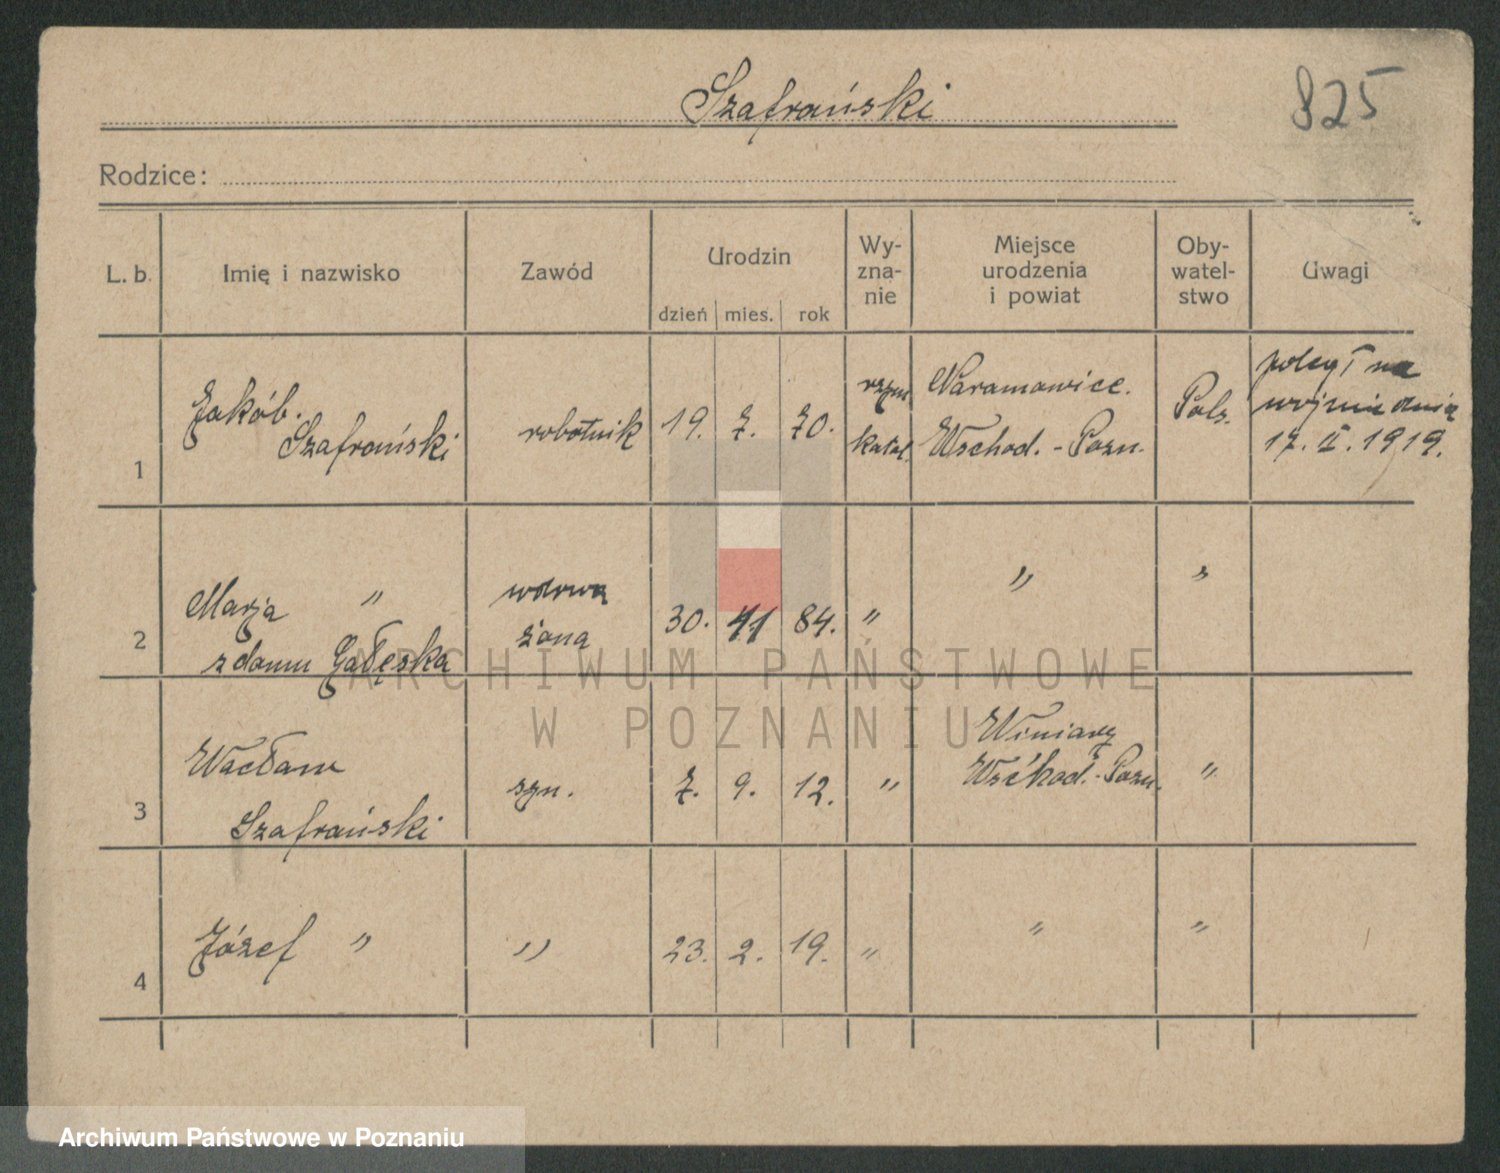 Szafrański
825
Rodzice:
L. b. Imię i nazwisko Zawód Urodzin Wy-zna-nie Miejsce urodzenia i powiat Oby-watel-stwo Uwagi
dzień mies. rok
1 Jakób. Szafrański robotnik 19. 7. 70. rzym. katol. Naramowice. Wschod. - Pozn. Pols. poległ na wojnie dnia 17. II. 1919.
2 Marja " z domu Gałęska wdowa żona 30. 11 84. " " "
3 Wacław Szafrański syn. 7. 9. 12. " Winiary Wschod. - Pozn. "
4 Józef " " 23. 2. 19. " " "
ARCHIWUM PAŃSTWOWE
W POZNANIU
Archiwum Państwowe w Poznaniu